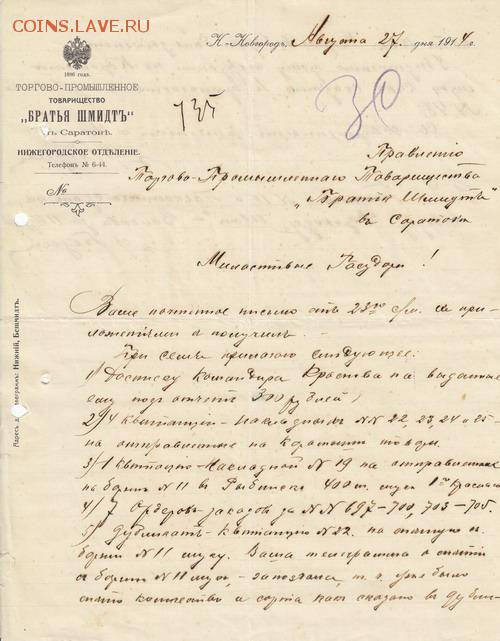 COINS.LAVE.RU
1896 года.
ТОРГОВО-ПРОМЫШЛЕННОЕ
ТОВАРИЩЕСТВО
„БРАТЬЯ ШМИДТЪ“
въ Саратовѣ.
НИЖЕГОРОДСКОЕ ОТДѢЛЕНІЕ.
Телефонъ № 6-44.
№
Н-Новгородъ, Августа 27. дня 1914 г.
735
30
Правленію
Торгово-Промышленнаго Товарищества
„Братья Шмидтъ“
въ Саратовѣ
Милостивые Государи!
Ваше почтенное письмо отъ 23го с/м. съ при-
ложеніями я получилъ.
При семъ прилагаю слѣдующее:
1) Росписку Командира на выданные
ему подъ отчетъ 300 рублей;
2) 4 квитанціи накладныхъ NN 22, 23, 24 и 25
на отправленные на
3) 1 квитанцію Накладной N 19 на
на баржѣ N 11 въ Рыбинскъ 400 м. муки 1го
4) 7 Ордеровъ заказовъ за NN 697-700, 703-705.
5) Дубликатъ квитанціи N 22. на снятую съ
баржи N 11 муку. Ваша телеграмма о снятіи
съ баржи N 11 муки - запоздала, т. к. уже было
снято количество и сорта какъ сказано въ дубли-
Адресъ для телеграммъ: Нижній, Бешмидтъ.